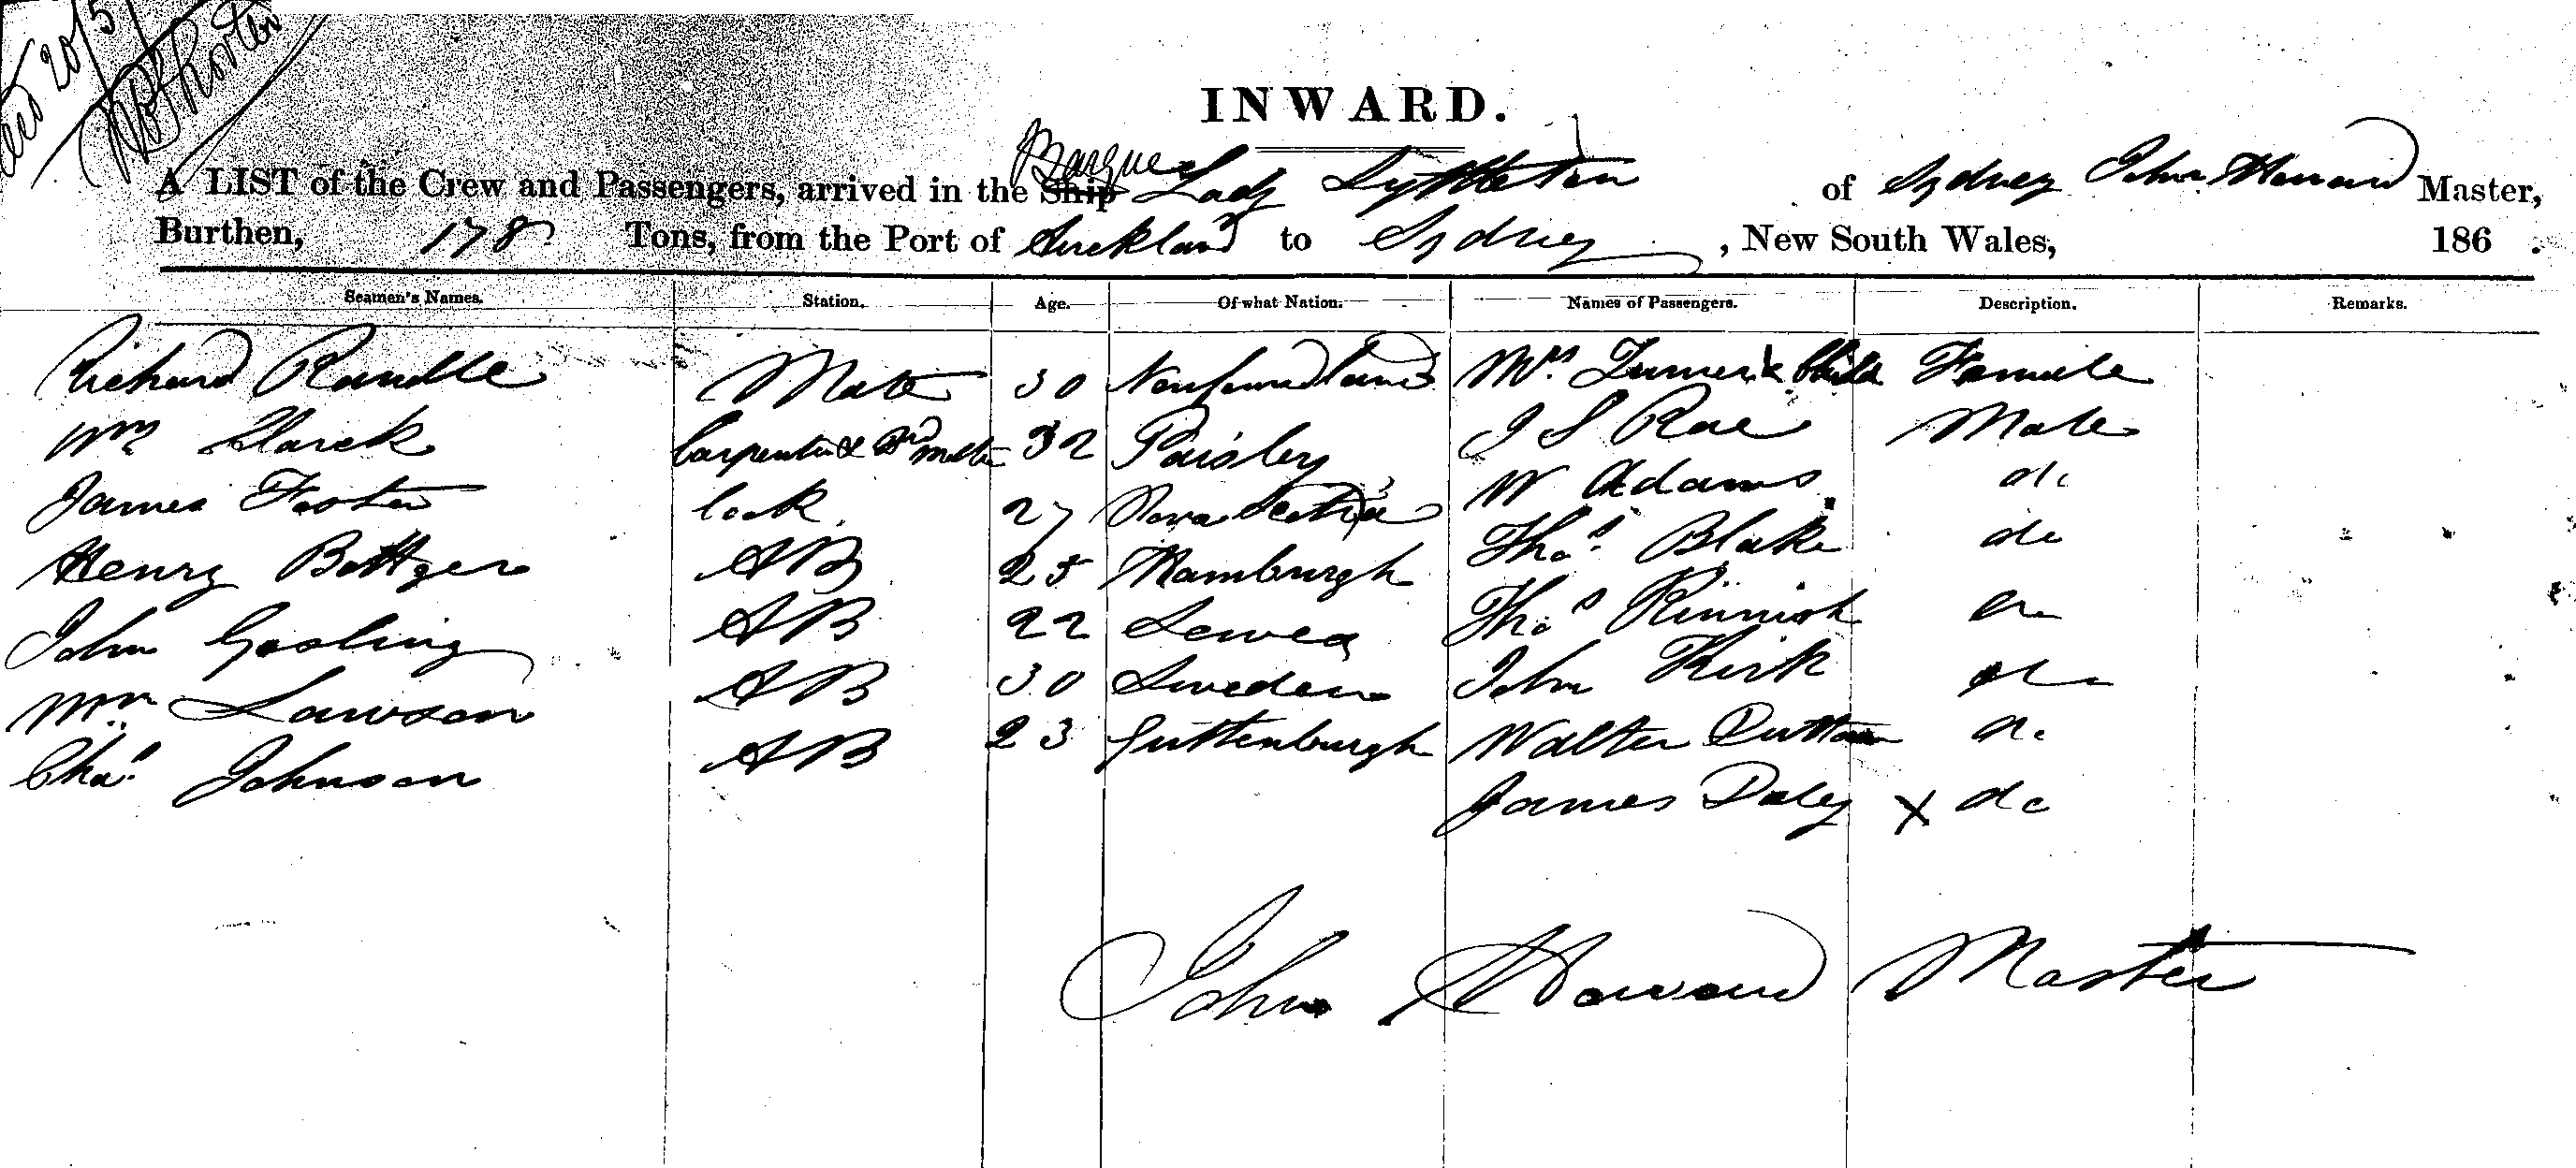 20/5
INWARD.
Barque
A LIST of the Crew and Passengers, arrived in the Ship Lady Lyttleton of Sydney John Howard Master,
Burthen, 178 Tons, from the Port of Auckland to Sydney, New South Wales, 186 .
Seamen's Names. Station. Age. Of what Nation. Names of Passengers. Description. Remarks.
Richard Randle Mate 30 Newfoundland Mrs. Turner & Child Female
Wm Clarck Carpenter & 2nd Mate 32 Paisley J S Rae Male
James Foster Cook 27 Nova Scotia W Adams do
Henry Bottger AB 25 Hamburgh Thos. Blake do
John Gosling AB 22 Lewes Thos Kinnish do
Wm Lawson AB 30 Sweden John Kirk do
Chas. Johnson AB 23 Guttenburgh Walter Dutton do
James Daley X do
John Howard Master